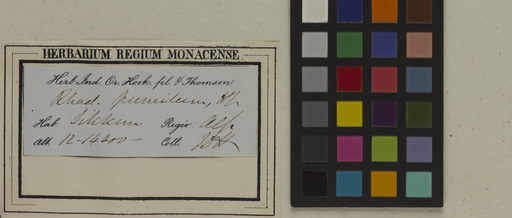 HERBARIUM REGIUM MONACENSE.
Herb. Ind. Or. Hook. fil. & Thomson.
Rhod. pumilum, Hf.
Hab. Sikkim Regio Alp.
Alt. 12-14000 — Coll. JDH